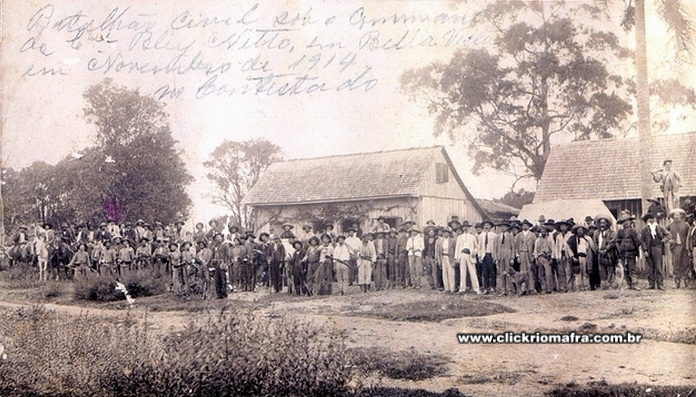 Batalhão Civil sob o Comman
de Cel Bley Netto, em Bella Vista
em Novembro de 1914,
no Contestado
www.clickriomafra.com.br